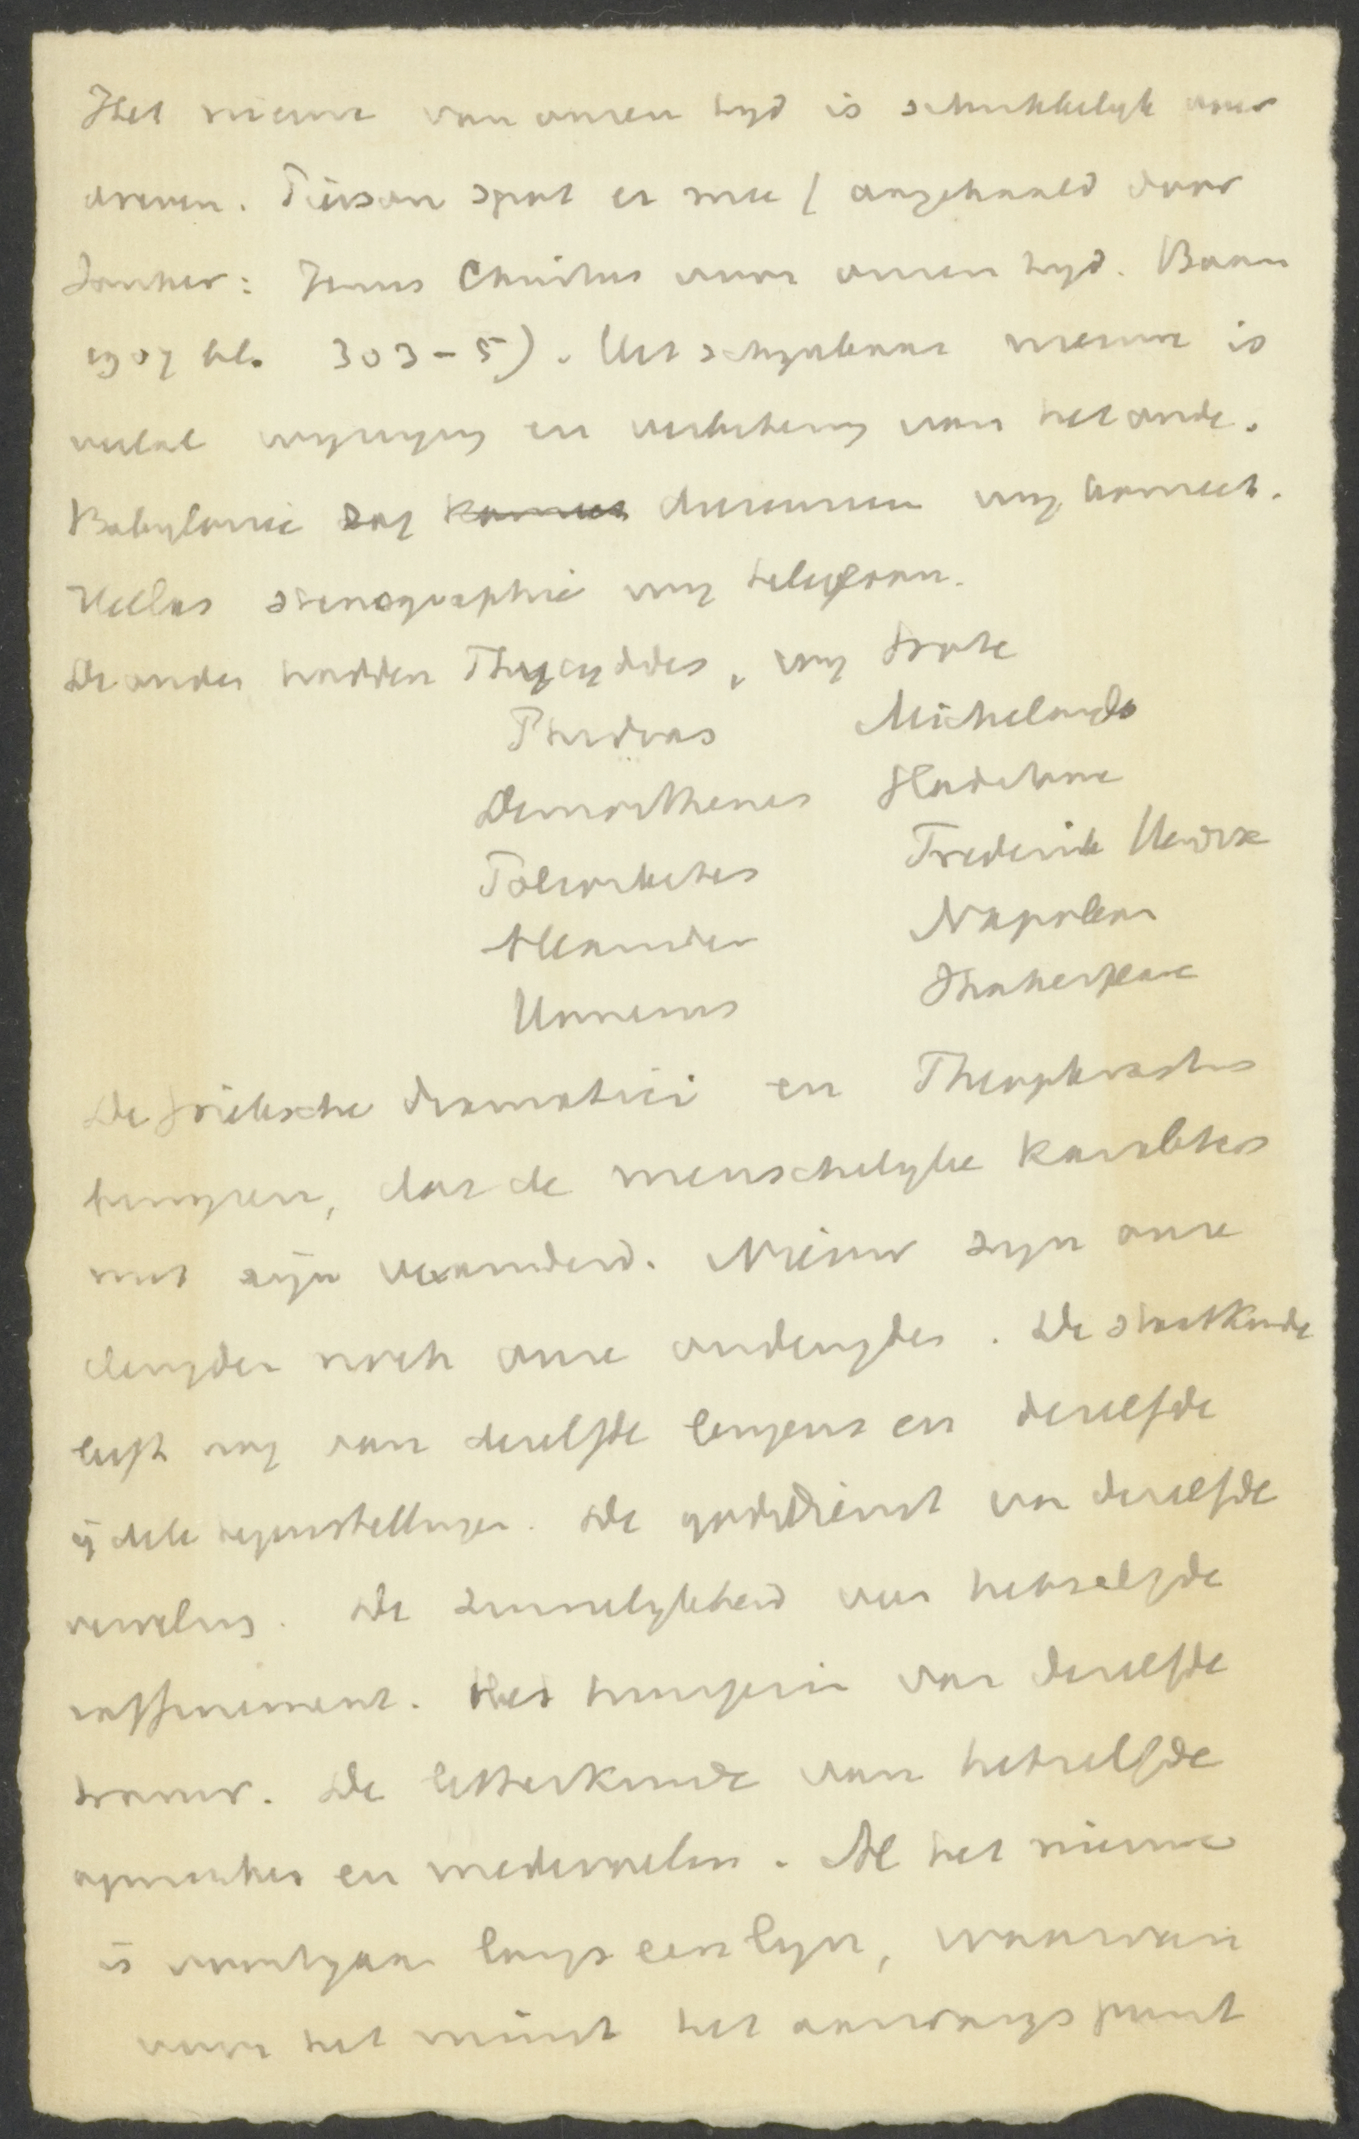 Het nieuwe van onzen tyd is schrikkelyk over
dreven. Pierson spot er mee / aangehaald door
Junker: Jezus Christus voor onzen tyd. Baarn
1907 blz. 303-5). Het schynbaar nieuwe is
veelal wyziging en verbetering van het oude.
Babylonië zag dierenriem wy komeet.
Hellas stenographie wy telefoon.
De ouden hadden Thucydides, wy Grote
Phidias Michelangelo
Demosthenes Gladstone
Poliorketes Frederik Hendrik
Alexander Napoleon
Homerus Shakespeare
De Grieksche dramatici en Theophrastus
getuigen, dat de menschelyke karakters
niet zyn veranderd. Nieuw zyn onze
deugden noch onze ondeugden. De staatkunde
leeft nog van dezelfde leugens en dezelfde
ydele tegenstellingen. De godsdienst van dezelfde
. De zinnelykheid van hetzelfde
raffinement. Het van dezelfde
. De letterkunde van hetzelfde
en . Al het nieuwe
is voortgaan langs een lyn, waarvan
voor het minst het aanvangspunt